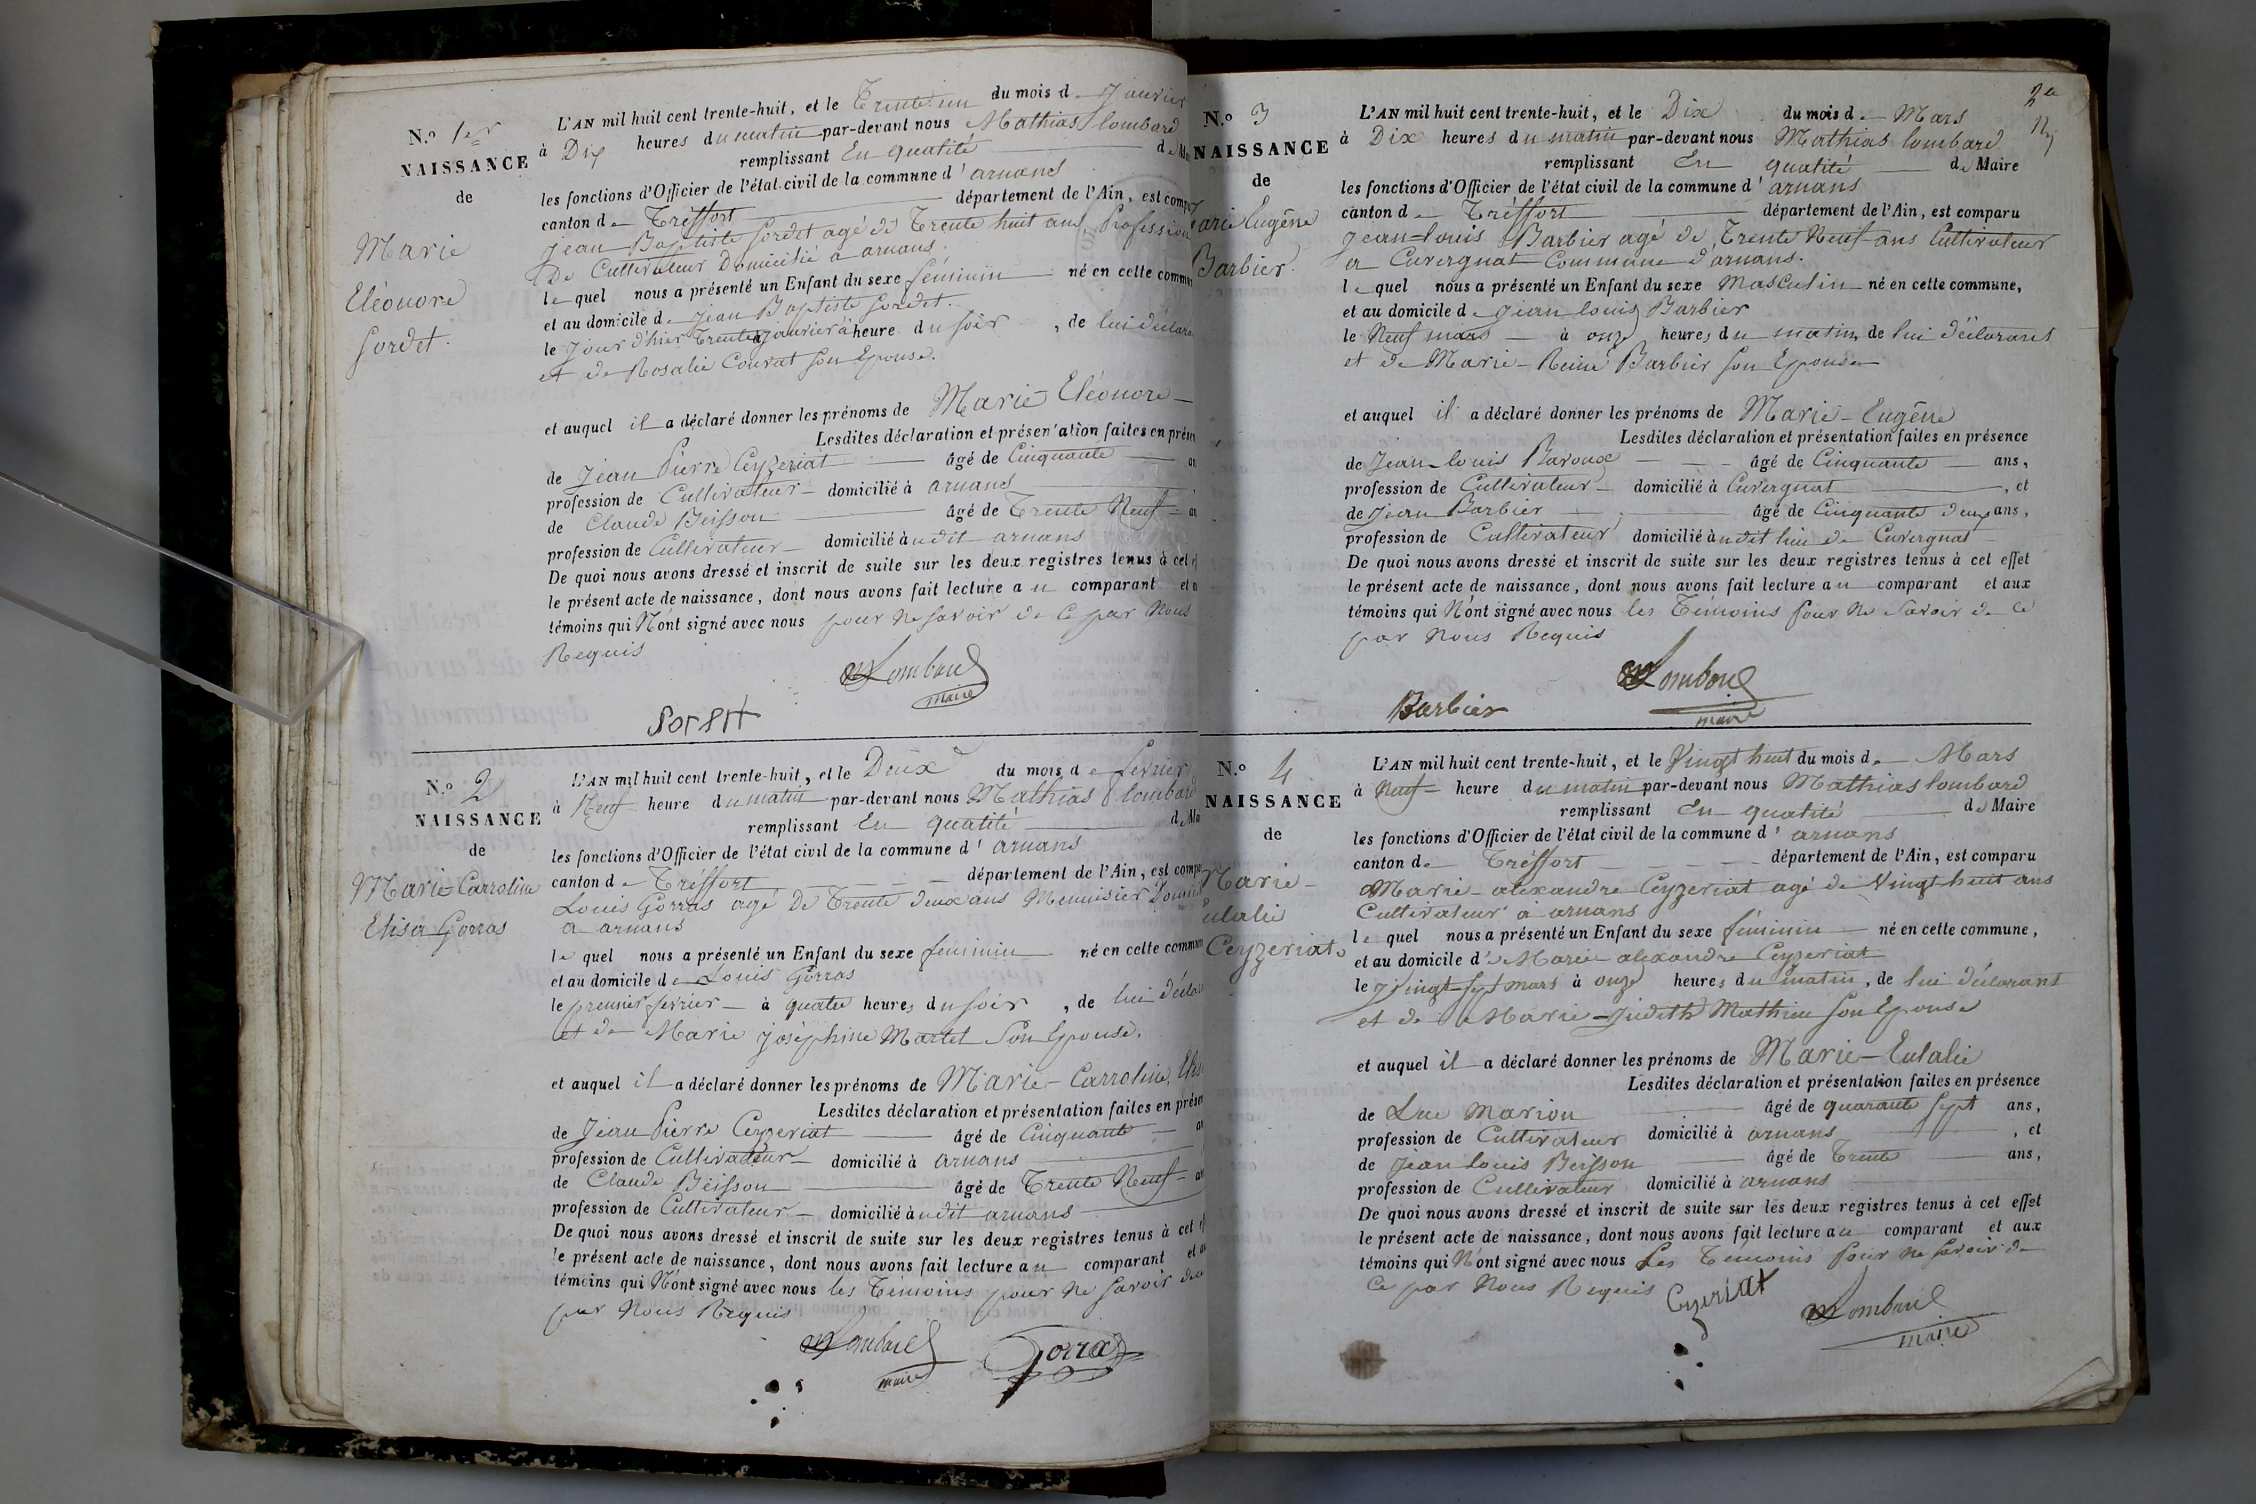 N.º 1er
NAISSANCE
de
Marie
Eléonore
Sordet.
L'AN mil huit cent trente-huit, et le Trente un du mois d Janvier
à Dix heures du matin par-devant nous Mathias Lombard
remplissant En qualité de
les fonctions d'Officier de l'état-civil de la commune d' arnans
canton de Tréffort département de l'Ain, est
Jean Baptiste Sordet agé de Trente huit ans, Profession
De Cultivateur Domicilié à arnans.
le quel nous a présenté un Enfant du sexe féminin né en cette
et au domicile de Jean Baptiste Sordet.
le jour d'hier Trente janvier à heure du soir, de lui
et de Rosalie Convat son Epouse.
et auquel il a déclaré donner les prénoms de Marie Eléonore
Lesdites déclaration et présentation faites en
de Jean Pierre Ceyzeriat âgé de Cinquante
profession de Cultivateur domicilié à arnans
de Claude Beisson âgé de Trente Neuf
profession de Cultivateur domicilié àudit arnans
De quoi nous avons dressé et inscrit de suite sur les deux registres tenus à cet
le présent acte de naissance, dont nous avons fait lecture au comparant et
témoins qui N'ont signé avec nous pour ne savoir de ce par Nous
Requis
M Lombard
maire
Sordet
N.º 2
NAISSANCE
de
Marie Carroline
Elisa Gorras
L'AN mil huit cent trente-huit, et le Deux du mois de fevrier
à Neuf heure du matin par-devant nous Mathias Lombard
remplissant En qualité de
les fonctions d'Officier de l'état civil de la commune d' arnans
canton de Tréffort département de l'Ain, est
Louis Gorras agé De Trente deux ans Menuisier
a arnans
le quel nous a présenté un Enfant du sexe feminin né en cette
et au domicile de Louis Gorras
le premier fevrier à quatre heures du soir, de lui
et de Marie joséphine Martel Son Epouse.
et auquel il a déclaré donner les prénoms de Marie Carroline,
Lesdites déclaration et présentation faites en
de Jean Pierre Ceyzeriat âgé de Cinquante
profession de Cultivateur domicilié à arnans
de Claude Beisson âgé de Trente Neuf
profession de Cultivateur domicilié àudit arnans
De quoi nous avons dressé et inscrit de suite sur les deux registres tenus à cet
le présent acte de naissance, dont nous avons fait lecture au comparant et
témoins qui N'ont signé avec nous les Témoins pour ne savoir
par Nous Requis
M Lombard
maire
Gorras
2
N.º 3
NAISSANCE
de
Eugêne
Barbier.
L'AN mil huit cent trente-huit, et le Dix du mois de Mars
à Dix heures du matin par-devant nous Mathias Lombard
remplissant En qualité de Maire
les fonctions d'Officier de l'état civil de la commune d' arnans
canton de Tréffort département de l'Ain, est comparu
Jean-Louis Barbier agé de Trente Neuf ans Cultivateur
a Cuvergnat Commune d'arnans.
le quel nous a présenté un Enfant du sexe Masculin né en cette commune,
et au domicile de Jean Louis Barbier
le Neuf mars à onze heures du matin, de lui déclarant
et de Marie-Reine Barbier son Epouse
et auquel il a déclaré donner les prénoms de Marie-Eugêne
Lesdites déclaration et présentation faites en présence
de Jean-Louis Baroux âgé de Cinquante ans,
profession de Cultivateur domicilié à Cuvergnat, et
de Jean Barbier âgé de Cinquante deux ans,
profession de Cultivateur domicilié àudit lieu de Cuvergnat
De quoi nous avons dressé et inscrit de suite sur les deux registres tenus à cet effet
le présent acte de naissance, dont nous avons fait lecture au comparant et aux
témoins qui N'ont signé avec nous les Témoins pour Ne Savoir de ce
par Nous Requis
M Lombard
maire
Barbier
N.º 4
NAISSANCE
de
Marie-
Ceyzeriat.
L'AN mil huit cent trente-huit, et le Vingt huit du mois de Mars
à Neuf heure du matin par-devant nous Mathias Lombard
remplissant En qualité de Maire
les fonctions d'Officier de l'état civil de la commune d' arnans
canton de Tréffort département de l'Ain, est comparu
Marie-alexandre Ceyzeriat agé de Vingt-huit ans
Cultivateur à arnans
le quel nous a présenté un Enfant du sexe féminin né en cette commune,
et au domicile d' Marie alexandre Ceyzeriat
le Vingt-sept mars à onze heures du matin, de lui déclarant
et de Marie-Judith Mathieu son Epouse
et auquel il a déclaré donner les prénoms de Marie-Eulalie
Lesdites déclaration et présentation faites en présence
de Luc Marion âgé de quarante sept ans,
profession de Cultivateur domicilié à arnans, et
de Jean Louis Beisson âgé de Trente ans,
profession de Cultivateur domicilié à arnans
De quoi nous avons dressé et inscrit de suite sur les deux registres tenus à cet effet
le présent acte de naissance, dont nous avons fait lecture au comparant et aux
témoins qui N'ont signé avec nous Les Témoins pour ne savoir de
Ce par Nous Requis
Cyzeriat
M Lombard
maire